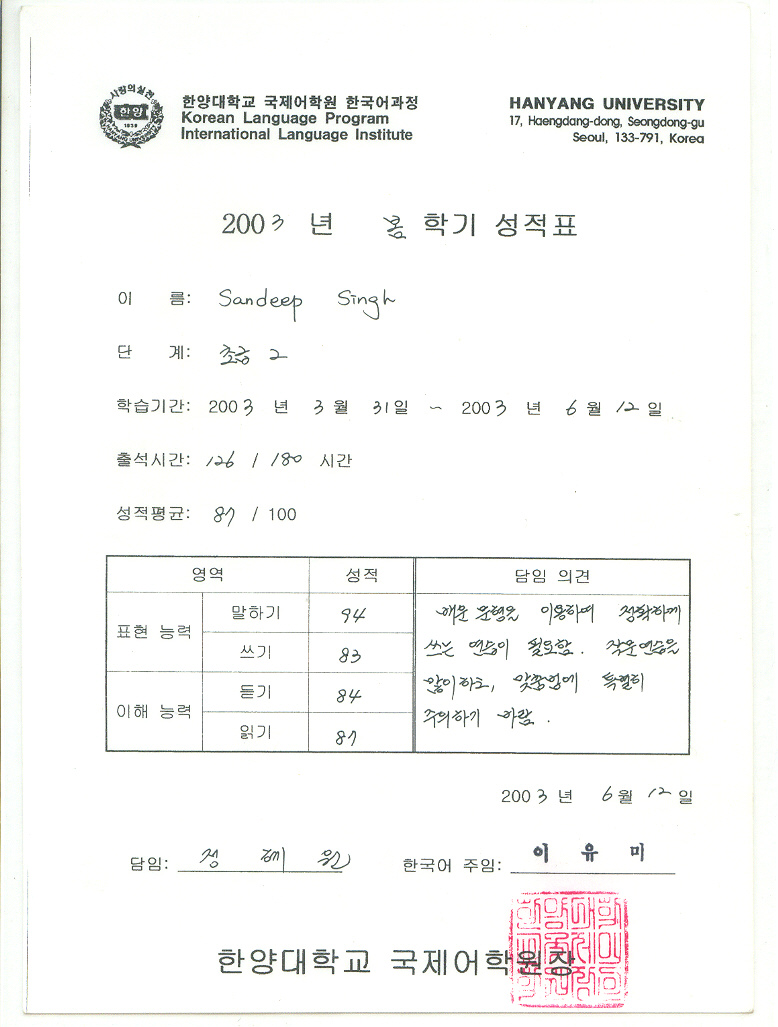 사랑의실천
한양
1939
HANYANG UNIVERSITY
한양대학교 국제어학원 한국어과정
Korean Language Program
International Language Institute
HANYANG UNIVERSITY
17, Haengdang-dong, Seongdong-gu
Seoul, 133-791, Korea
2003 년 봄 학기 성적표
이 름: Sandeep Singh
단 계: 초급 2
학습기간: 2003 년 3 월 31일 ~ 2003 년 6 월 12 일
출석시간: 126 / 180 시간
성적평균: 87 / 100
영역 성적 담임 의견
표현 능력 말하기 94
쓰기 83
이해 능력 듣기 84
읽기 87
배운 문형을 이용하여 정확하게
쓰는 연습이 필요함. 작문연습을
많이 하고, 맞춤법에 특별히
주의하기 바람.
2003 년 6 월 12 일
담임: 정 원 한국어 주임: 이 유 미
한양대학교 국제어학원장